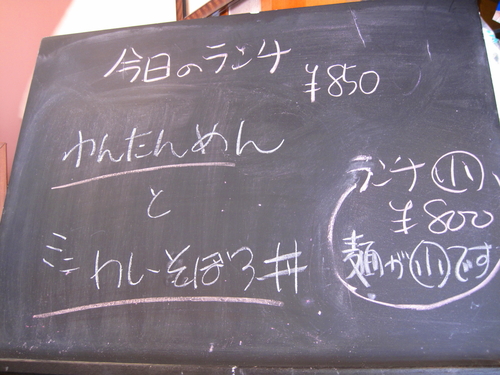 今日のランチ
¥850
わんたんめん
と
ミニカレーそぼろ丼
ランチ㊙小、
¥800
麺が小です